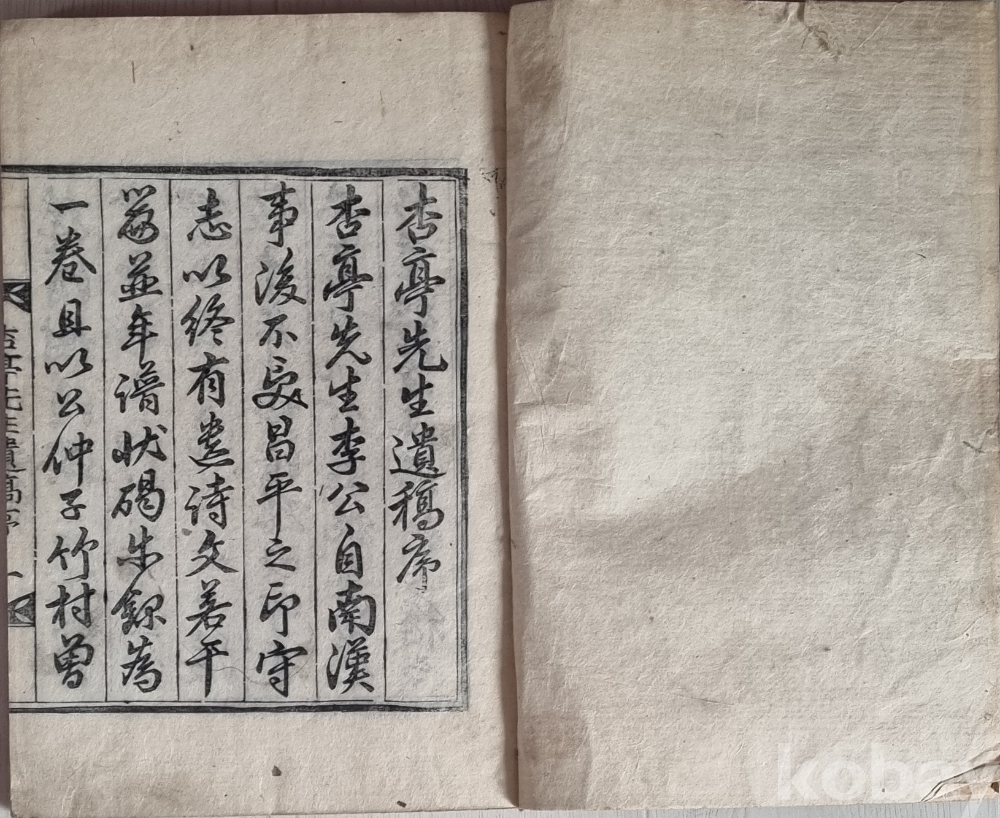 杏亭先生遺稿序
杏亭先生李公自南漢
事後不受昌平之印守
志以終有遺詩文若干
篇並年譜狀碣等錄為
一卷且以公仲子竹村曾
杏亭先生遺稿序 一
koba